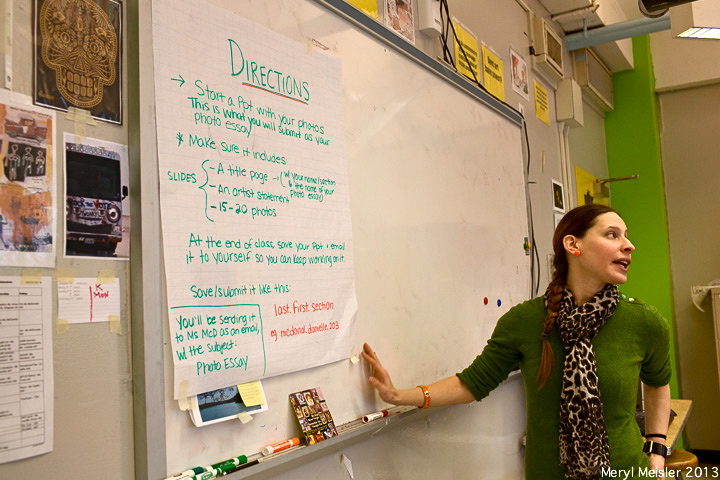 DIRECTIONS
→ Start a Ppt with your photos
This is what you will submit as your
photo essay
* Make sure it includes:
SLIDES
- A title page - (w/ your name/section
& the name of your
photo essay)
- An artist statement
- 15-20 photos
At the end of class save your Ppt + email
it to yourself so you can keep working on it.
Save/submit it like this:
last.first.section
eg mcdonal.danielle.203
You'll be sending it
to Ms McD as an email,
w/ the subject:
Photo Essay
Meryl Meisler 2013